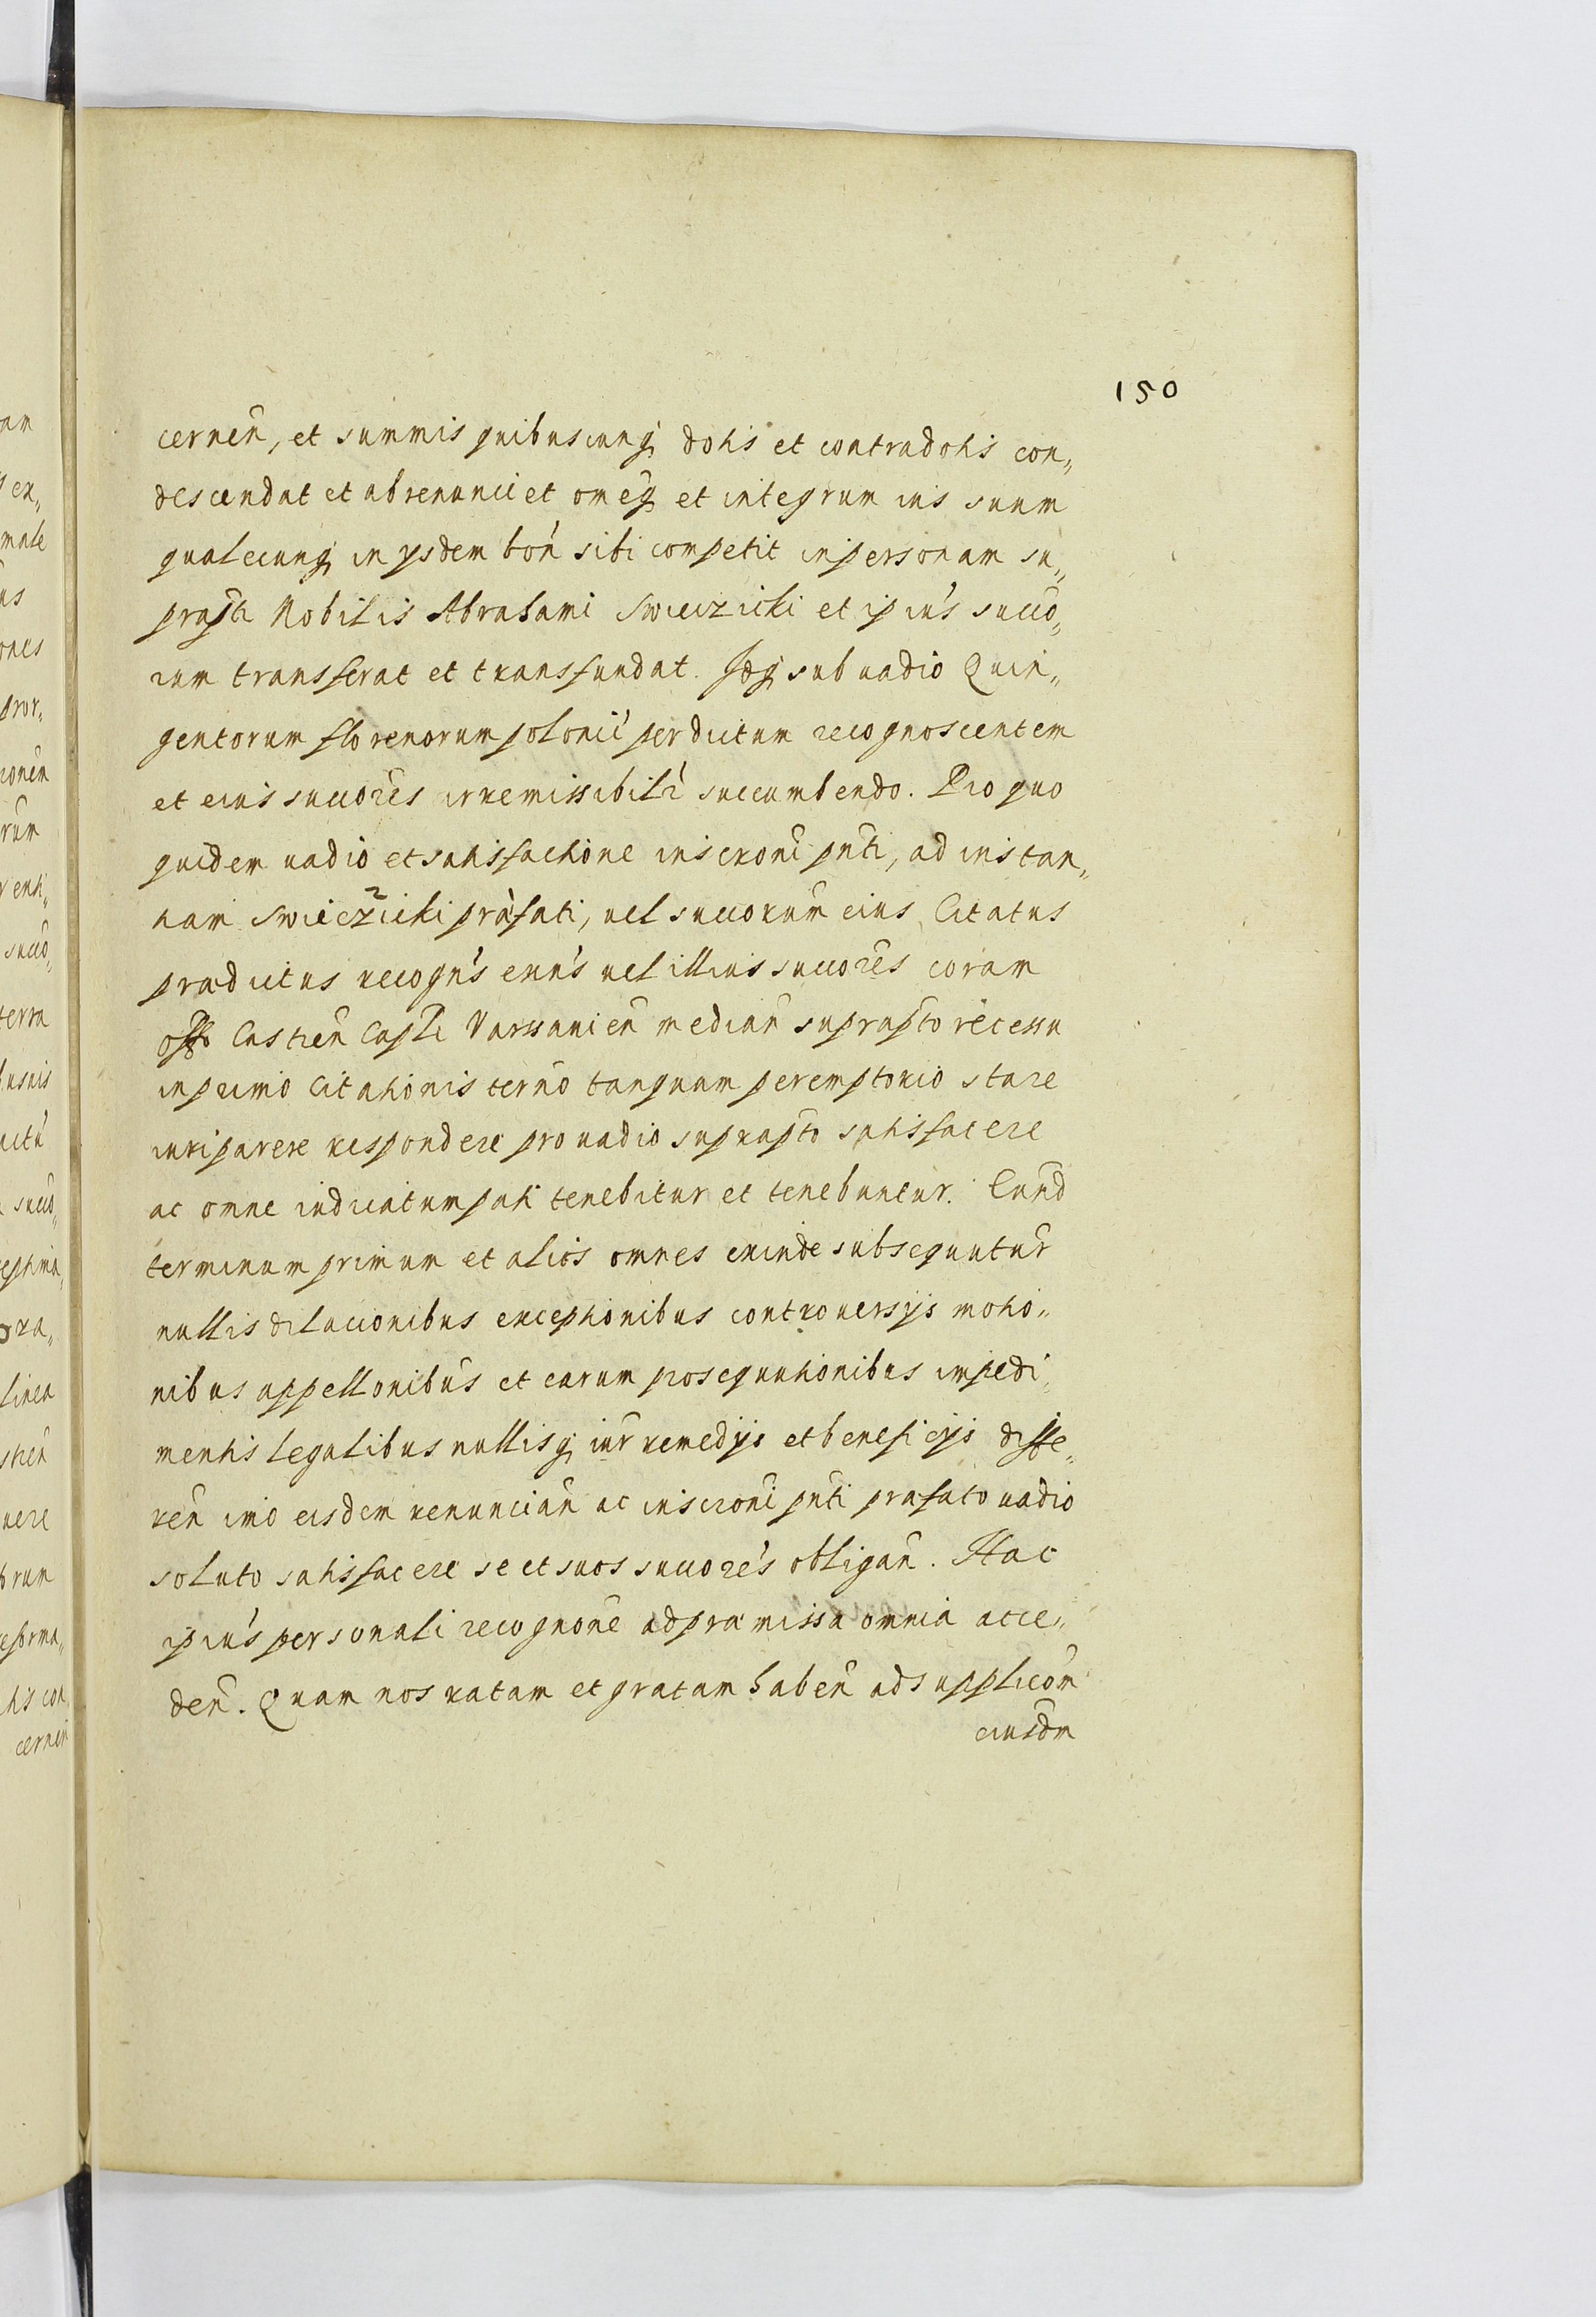 150
cernen̄, et summis quibuscunq; dotis et contradotis con„
descendat et abrenunciet omēq; et integrum ius suum
qualecunq; in ysdem bon̄ sibi competit in personam su„
prap̄ti Nobilis Abrahami Swieczicki et ipius succo„
rum transferat et transfundat. Idq; sub vadio Quin„
gentorum florenorum polonic̄ per dictum recognoscentem
et eius succores̄ irremissibilr̄ succumbendo. Pro quo
quidem vadio et satisfactione inscronī pn̄ti, ad instan„
tiam Swieczicki præfati, vel succorum̄ eius Citatus
prædictus recogn̄s eun̄s vel illius succores̄ coram
offo Castren̄ Capli Varssavien̄ median̄ suprapto recessu
in primo Citationis termō tanquam peremptorio stare
iuri parere respondere pro vadio suprapto satisfacere
ac omne iudicatum pati tenebitur et tenebuntur. Eund̄
terminum primum et alios omnes exinde subsequentur̄
nullis dilacionibus exceptionibus controversys motio„
nibus appellonibus̄ et earum prosequutionibus impedi„
mentis legalibus nullisq; iur̄ remedys et beneficys diffe„
ren̄ imo eisdem renuncian̄ ac inscronī pn̄ti præfato vadio
soluto satisfacere se et suos succores̄ obligan̄. Hac
ipius personali recognone̅ ad præmissa omnia acce„
den̄. Quam nos ratam et gratam haben̄ ad supplicon̄
eiusdm